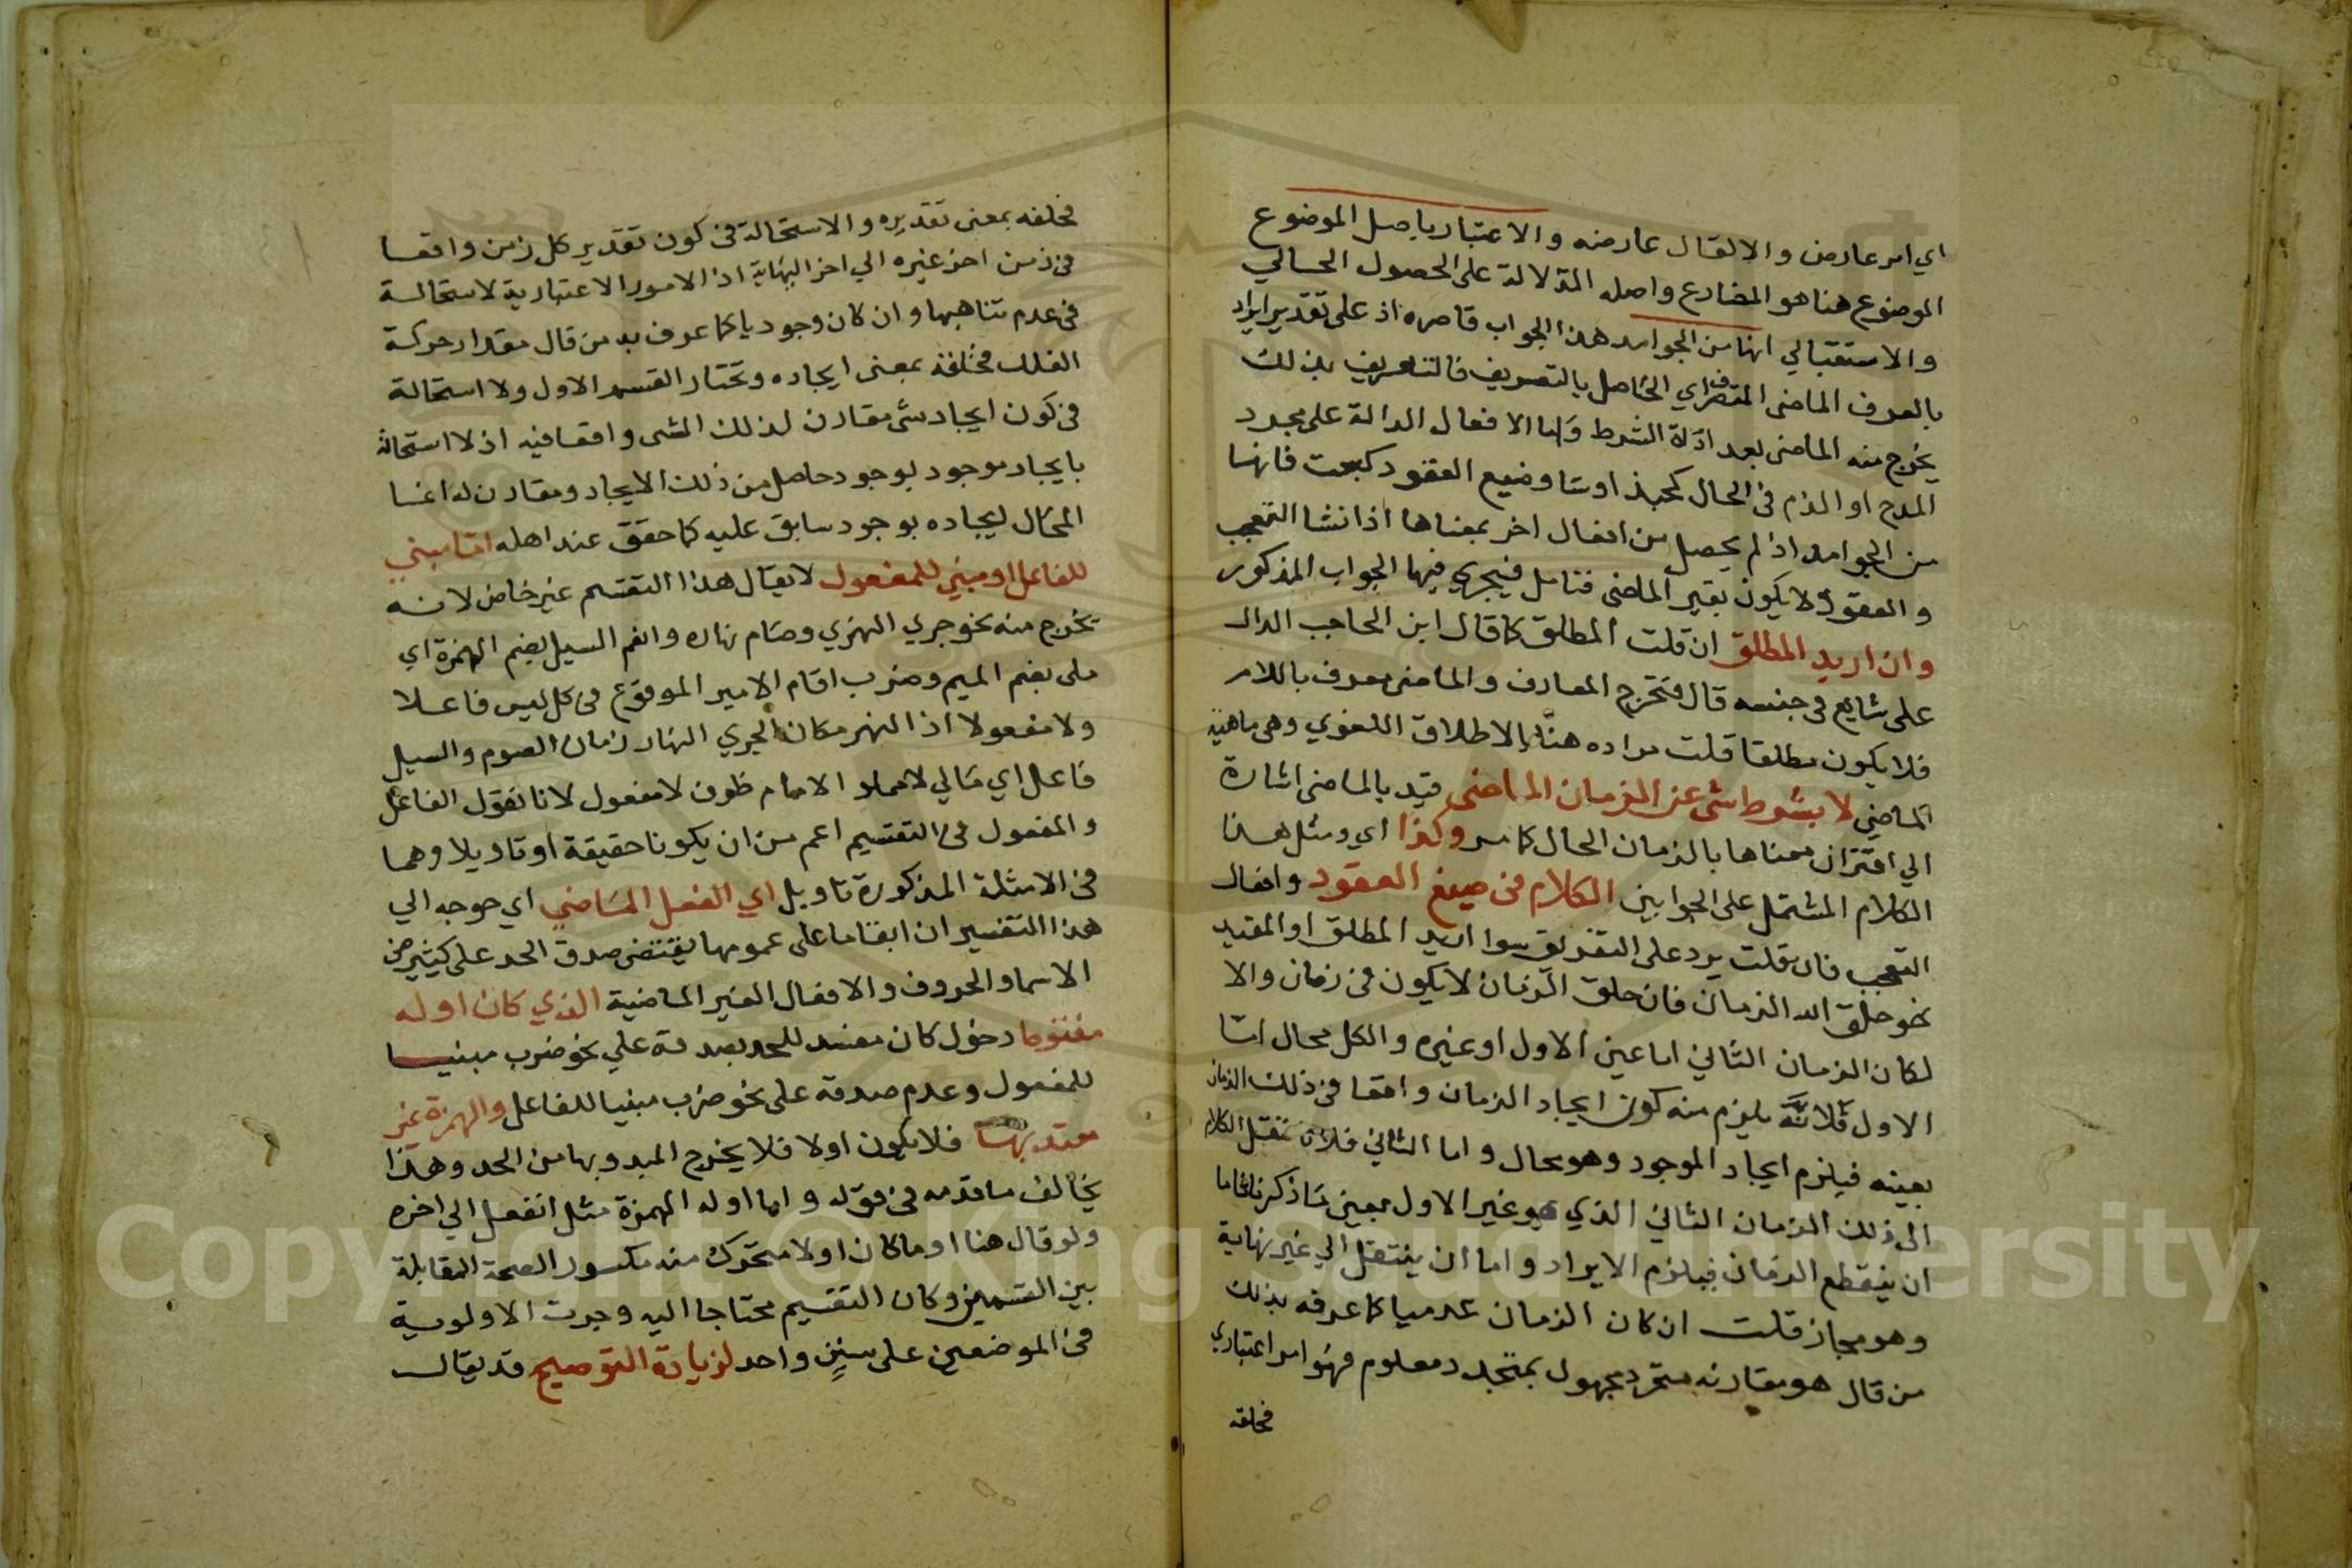 اي امر عارض والاتصال عارضه والاعتبار باصل الموضوع
الموضوع هنا هو المضارع واصله الدلالة على الحصول الحالي
والاستقبالي انها من الجوامد هذا الجواب قاصره اذ على تقدير ايراد
بالعرف الماضى المتصرف اي الحاصل بالتصريف فالتعريف بذلك
يخرج منه الماضى بعد اداة الشرط واما الافعال الدالة على مجرد
المدح او الذم فى الحال كحبذا وسا وضيع العقود كبعت فانها
من الجوامد اذ لم يحصل من افعال اخر بمعناها اذ انشا التعجب
والعقود لا يكون بغير الماضى فتامل فيجري فيها الجواب المذكور
وان اريد المطلق ان قلت المطلق كما قال ابن الحاجب الدال
على شايع فى جنسه قال فتخرج المعارف والماضى معرف باللام
فلا يكون مطلقا قلت مراده هنا بالاطلاق اللغوي وهى ماهية
الماضي لا بشرط شى عن الزمان الماضى قيد بالماضى اشارة
الي اقتران معناها بالزمان الحال كما مر وكذا اي ومثل هذا
الكلام المشتمل على الجوابين الكلام فى صيغ العقود وافعال
التعجب فان قلت يرد على التعريق سوا اريد المطلق او المقيد
نحو خلق الله الزمان فان خلق الزمان لا يكون فى زمان والا
لكان الزمان الثاني اما عين الاول او غيره والكل محال امّا
الاول فلانّه يلزم منه كون ايجاد الزمان واقعا فى ذلك الزمان
بعينه فيلزم ايجاد الموجود وهو محال واما الثاني فلان ننقل الكلام
الى ذلك الزمان الثاني الذي هو غير الاول بمعين ما ذكرنا فاما
ان ينقطع الزمان فيلزم الايراد واما ان ينتقل الي غير نهاية
وهو مجاز قلت ان كان الزمان عدميا كما عرفه بذلك
من قال هو مقارنه متجرد مجهول بمتجدد معلوم فهو امر اعتباري
فخلقه
فخلقه بمعنى تقديره والاستحالة فى كون تقدير كل زمن واقعا
فى زمن اخر غيره الي اخر النهاية اذ الامور الاعتبارية لا استحالة
فى عدم تناهيها وان كان وجوديا كما عرف به من قال مقدار حركة
الفلك فخلقه بمعنى ايجاده ونختار القسم الاول ولا استحالة
فى كون ايجاد شى مقارن لذلك الشى واقعا فيه اذ لا استحالة
بايجاد موجود بوجود حاصل من ذلك الايجاد ومقارن له انما
المحال ايجاده بوجود سابق عليه كما حقق عند اهله امّا مبني
للفاعل او مبني للمفعول لا يقال هذا التقسم غير خاص لانه
يخرج منه نحو جري النهري وصام نهاره وانعم السيل بضم الهمزة اي
ملى بضم الميم وضرب امام الامير الموقوع فى كل ليس فاعلا
ولا مفعولا اذ النهر مكان الجري النهار زمان الصوم والسيل
فاعل اي مالي لا مملا الامام ظرف لا مفعول لانا نقول الفاعل
والمفعول فى التقسيم اعم من ان يكونا حقيقة او تاويلا وهما
فى الامثلة المذكورة تاويل اي الفعل الماضي اي حوجه الي
هذا التفسير ان ابقا ما على عمومها يقتضى صدق الحد على كثير من
الاسما والحروف والافعال الغير الماضية الذي كان اوله
مفتوحا دخول كان مفسد للحد بصدقه علي نحو ضرب مبنيا
للمفعول وعدم صدقه على نحو ضرب مبنيا للفاعل والهمزة غير
معتد بها فلا يكون اولا فلا يخرج المبدو بها من الحد وهذا
يخالف ما قدمه فى قوله واما اوله الهمزة مثل انفعل الي اخره
ولو قال هنا او ما كان اولا متحرك منه مكسور الصحة المقابلة
بين القسمين وكان التقسيم محتاجا اليه وجرت الاولوية
فى الموضعين على سنن واحد لزيادة التوضيح قد يقال
Copyright © King Saud University